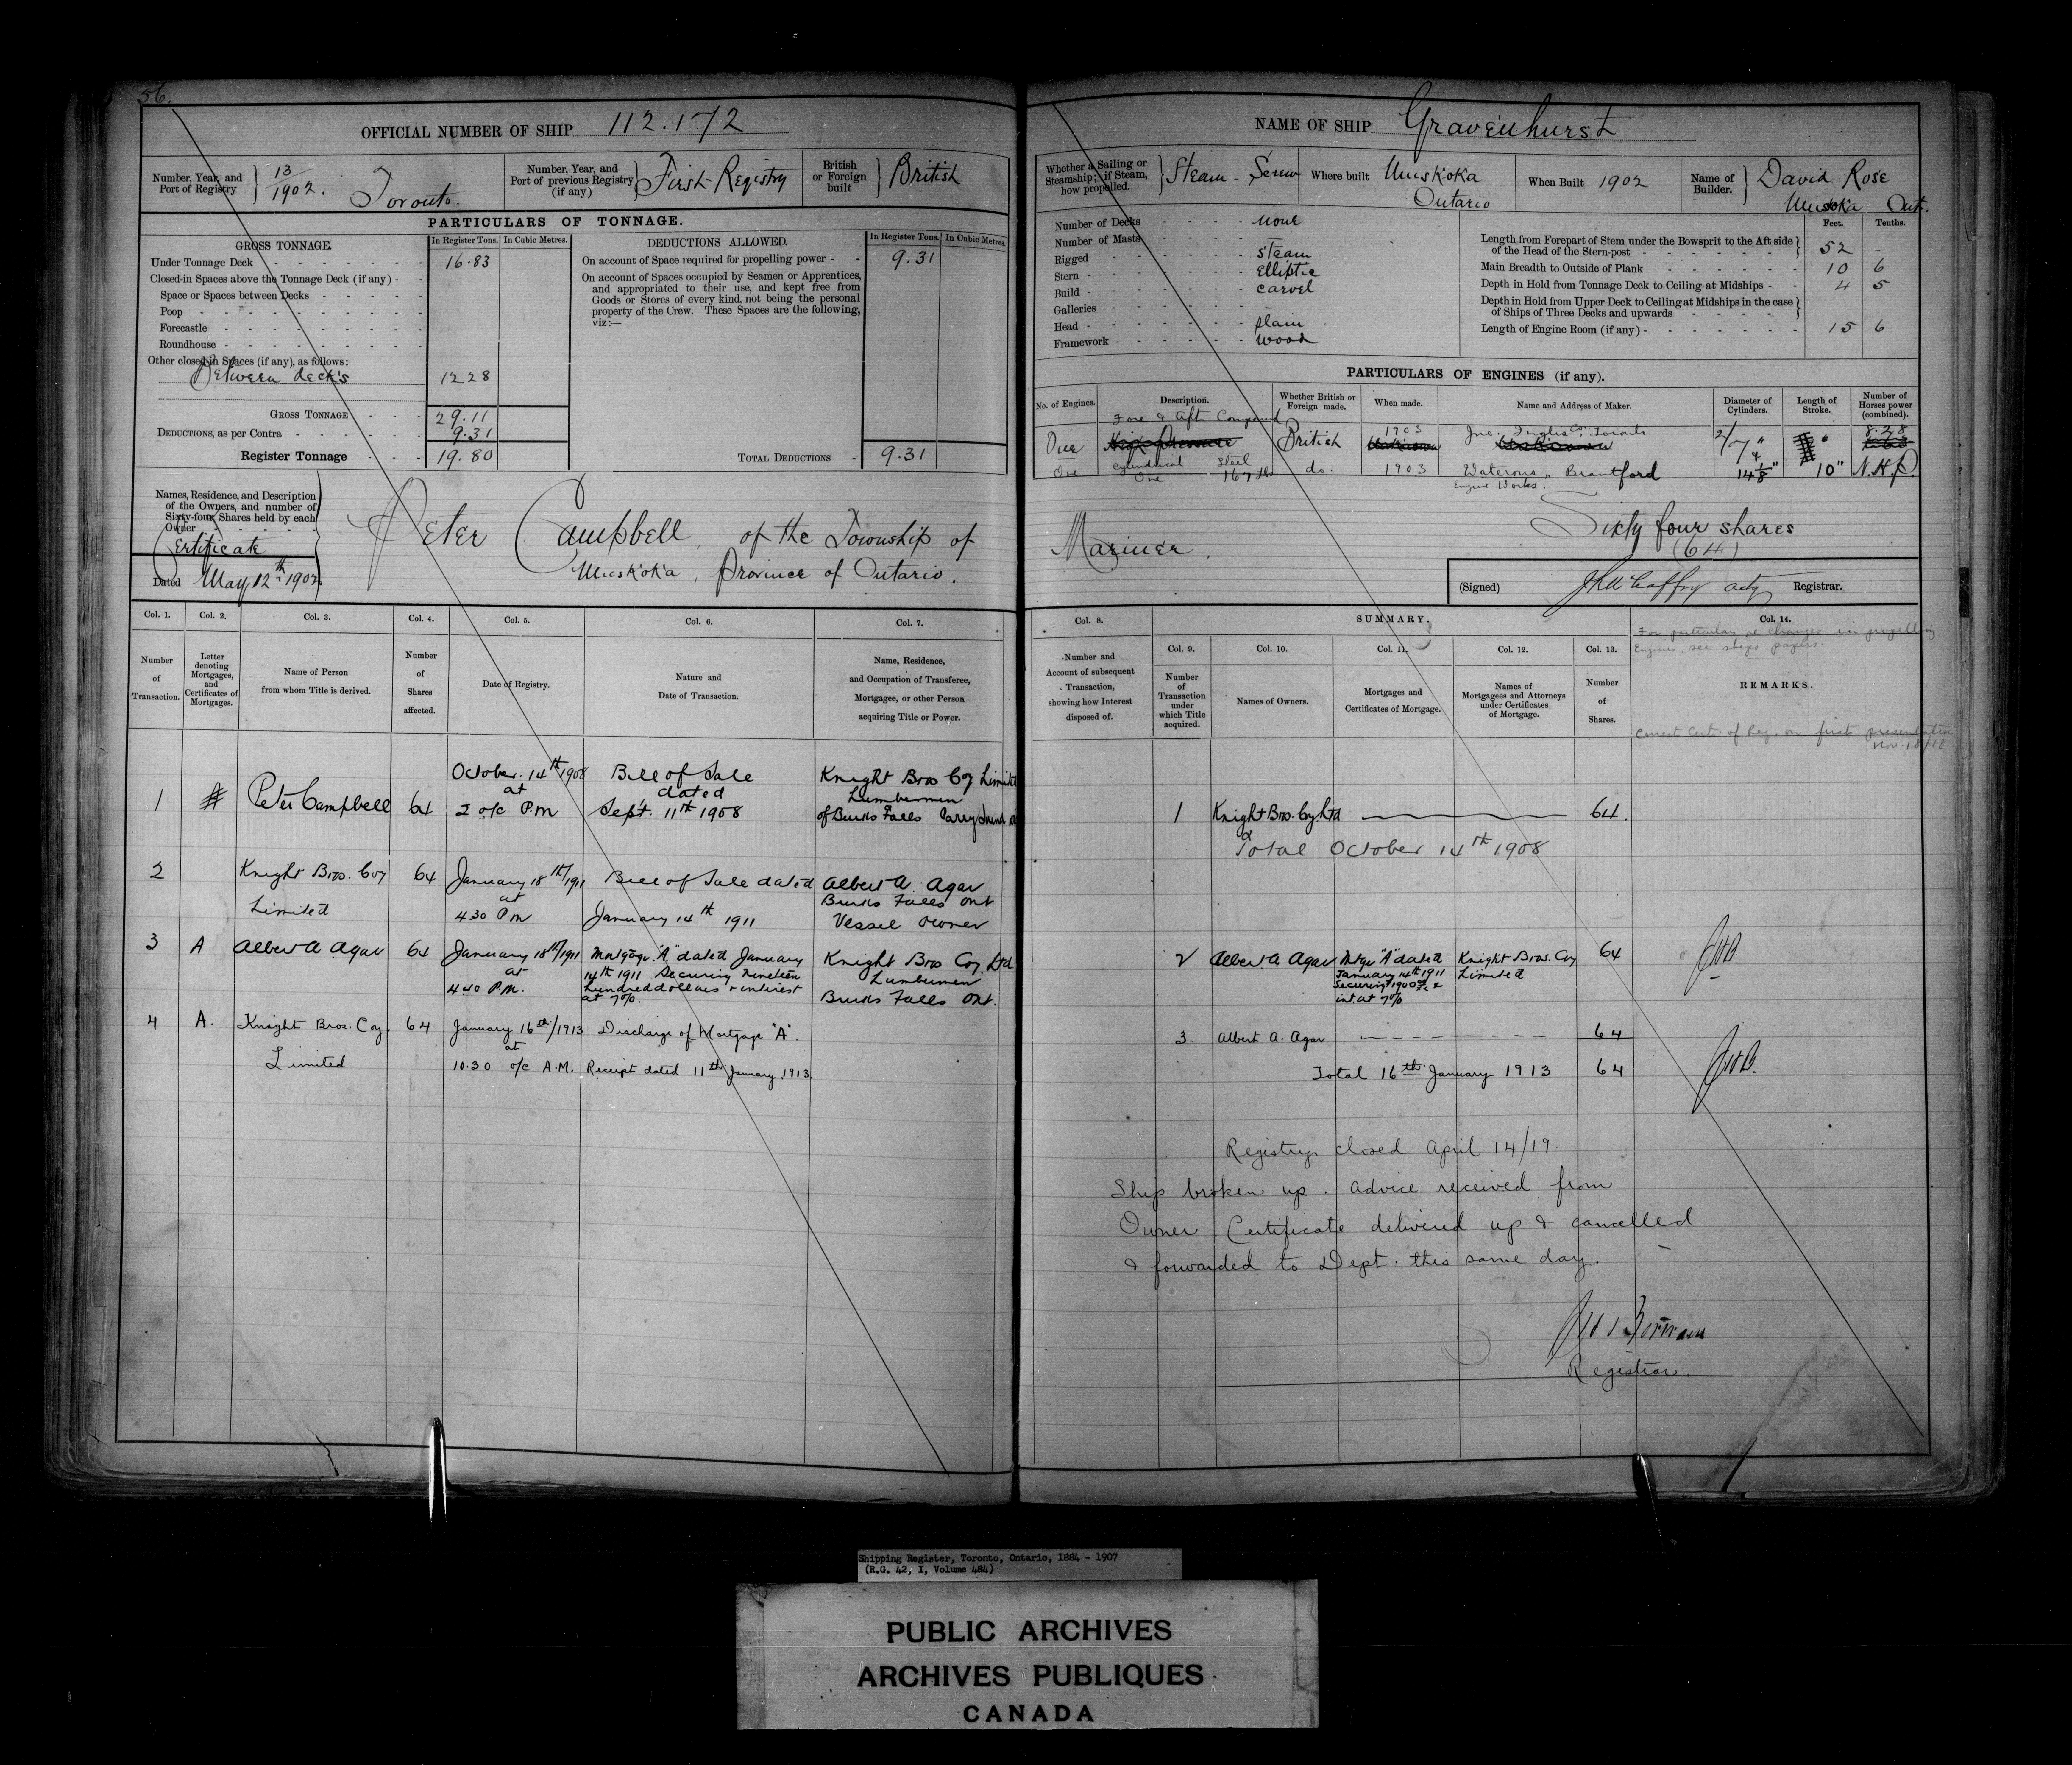 56.
OFFICIAL NUMBER OF SHIP 112.172
Number, Year, and Port of Registry 13/1902. Toronto.
Number, Year, and Port of previous Registry (if any) First Registry
British or Foreign built British
PARTICULARS OF TONNAGE.
GROSS TONNAGE. In Register Tons. In Cubic Metres.
Under Tonnage Deck 16.83
Closed-in Spaces above the Tonnage Deck (if any)
Space or Spaces between Decks
Poop
Forecastle
Roundhouse
Other closed-in Spaces (if any), as follows:
Between decks 12 28
GROSS TONNAGE 29.11
DEDUCTIONS, as per Contra 9.31
Register Tonnage 19.80
DEDUCTIONS ALLOWED. In Register Tons. In Cubic Metres.
On account of Space required for propelling power 9.31
On account of Spaces occupied by Seamen or Apprentices,
and appropriated to their use, and kept free from
Goods or Stores of every kind, not being the personal
property of the Crew. These Spaces are the following,
viz:—
TOTAL DEDUCTIONS 9.31
Names, Residence, and Description
of the Owners, and number of
Sixty-four Shares held by each
Owner
Certificate
Dated May 12th 1902
Peter Campbell, of the Township of
Muskoka, Province of Ontario.
Col. 1. Col. 2. Col. 3. Col. 4. Col. 5. Col. 6. Col. 7.
Number of Transaction.
Letter denoting Mortgages, and Certificates of Mortgages.
Name of Person from whom Title is derived.
Number of Shares affected.
Date of Registry.
Nature and Date of Transaction.
Name, Residence, and Occupation of Transferee, Mortgagee, or other Person acquiring Title or Power.
1 Peter Campbell 64 October 14th 1908 at 2 o/c P.M Bill of Sale dated Sept. 11th 1908 Knight Bros Coy Limited Lumbermen of Burks Falls Parry Sound
2 Knight Bros. Coy Limited 64 January 18th/1911 at 4 30 P.M Bill of Sale dated January 14th 1911 Albert A. Agar Burks Falls Ont Vessel Owner
3 A Albert A Agar 64 January 18th/1911 at 4 40 P.M. Mortgage "A" dated January 14th 1911 Securing Nineteen hundred dollars & interest at 7%. Knight Bros Coy. Ltd Lumbermen Burks Falls Ont.
4 A. Knight Bros. Coy. Limited 64 January 16th/1913 at 10.30 o/c A.M. Discharge of Mortgage "A". Receipt dated 11th January 1913.
NAME OF SHIP Gravenhurst
Whether a Sailing or Steamship; if Steam, how propelled. Steam - Screw
Where built Muskoka Ontario
When Built 1902
Name of Builder. David Rose Muskoka Ont.
Number of Decks none
Number of Masts
Rigged steam
Stern Elliptic
Build carvel
Galleries
Head plain
Framework wood
Feet. Tenths.
Length from Forepart of Stem under the Bowsprit to the Aft side of the Head of the Stern-post 52 -
Main Breadth to Outside of Plank 10 6
Depth in Hold from Tonnage Deck to Ceiling at Midships 4 5
Depth in Hold from Upper Deck to Ceiling at Midships in the case of Ships of Three Decks and upwards
Length of Engine Room (if any) 15 6
PARTICULARS OF ENGINES (if any).
No. of Engines. Description. Whether British or Foreign made. When made. Name and Address of Maker. Diameter of Cylinders. Length of Stroke. Number of Horses power (combined).
Fore & Aft Compound
One High Pressure British 1903 Unknown Jno. Inglis Co., Toronto Unknown 8.28
One Cylindrical Steel One 167 lbs do. 1903 Waterous Engine Works. Brantford 14 1/8" 10" N.H.P.
Mariner.
Sixty four shares
(64)
(Signed) acty Registrar.
Col. 8. SUMMARY. Col. 14.
For particulars re changes in propelling
Engines, see ships papers.
Col. 9. Col. 10. Col. 11. Col. 12. Col. 13.
Number and Account of subsequent Transaction, showing how Interest disposed of.
Number of Transaction under which Title acquired.
Names of Owners.
Mortgages and Certificates of Mortgage.
Names of Mortgagees and Attorneys under Certificates of Mortgage.
Number of Shares.
REMARKS.
Correct Cert. of Reg. on first presentation
Nov. 18/18
1 Knight Bros. Coy. Ltd 64.
Total October 14th 1908
2 Albert A Agar Mtge "A" dated January 14th 1911 Securing 1900 & int. at 7% Knight Bros. Coy Limited 64
3 Albert A. Agar 64
Total 16th January 1913 64
Registry closed April 14/19.
Ship broken up. Advice received from
Owner. Certificate delivered up & cancelled
& forwarded to Dept. this same day.
Registrar.
Shipping Register, Toronto, Ontario, 1884 - 1907
(R.G. 42, I, Volume 484)
PUBLIC ARCHIVES
ARCHIVES PUBLIQUES
CANADA